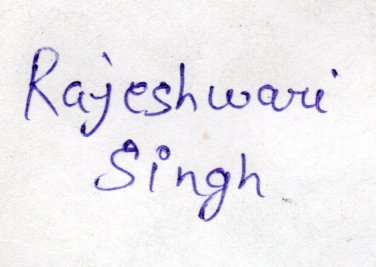 Rajeshwari
Singh